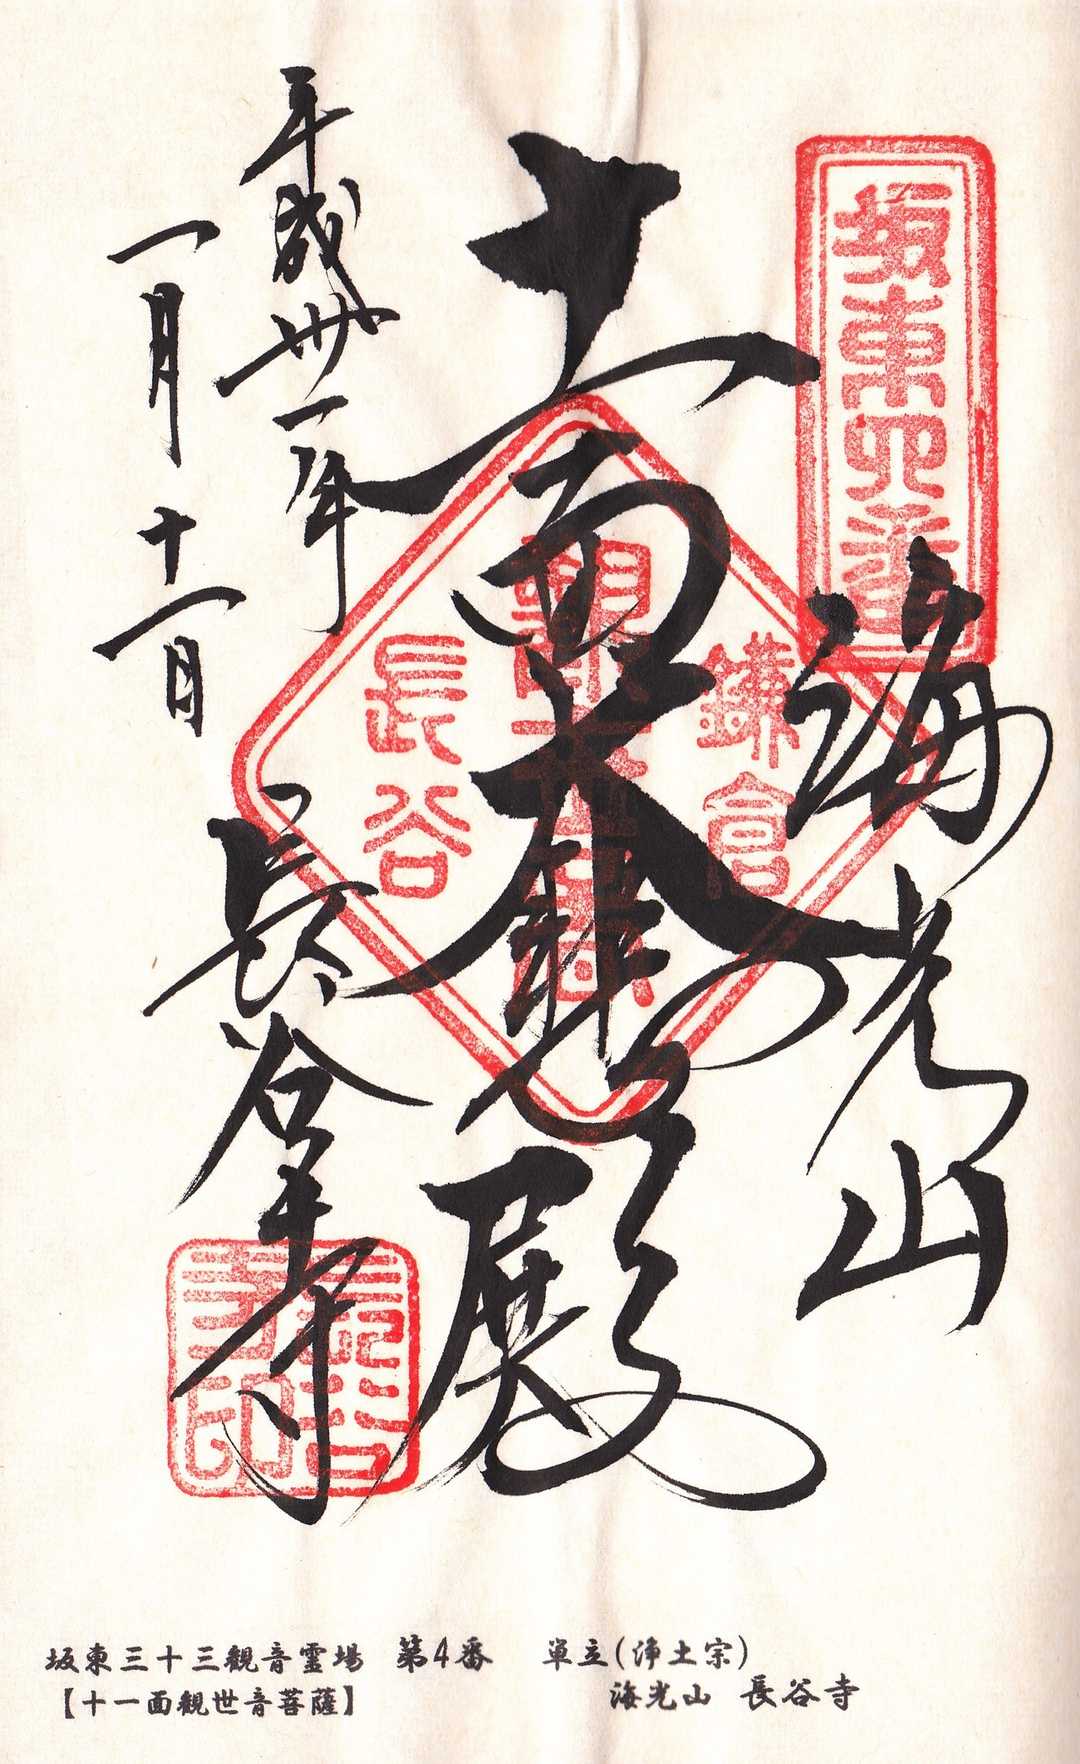 坂東四番
海光山
十一面大悲殿
鎌倉
観世音
長谷
平成卅一年
一月十一日
長谷寺
坂東三十三観音霊場 第4番 単立(浄土宗)
【十一面観世音菩薩】 海光山 長谷寺